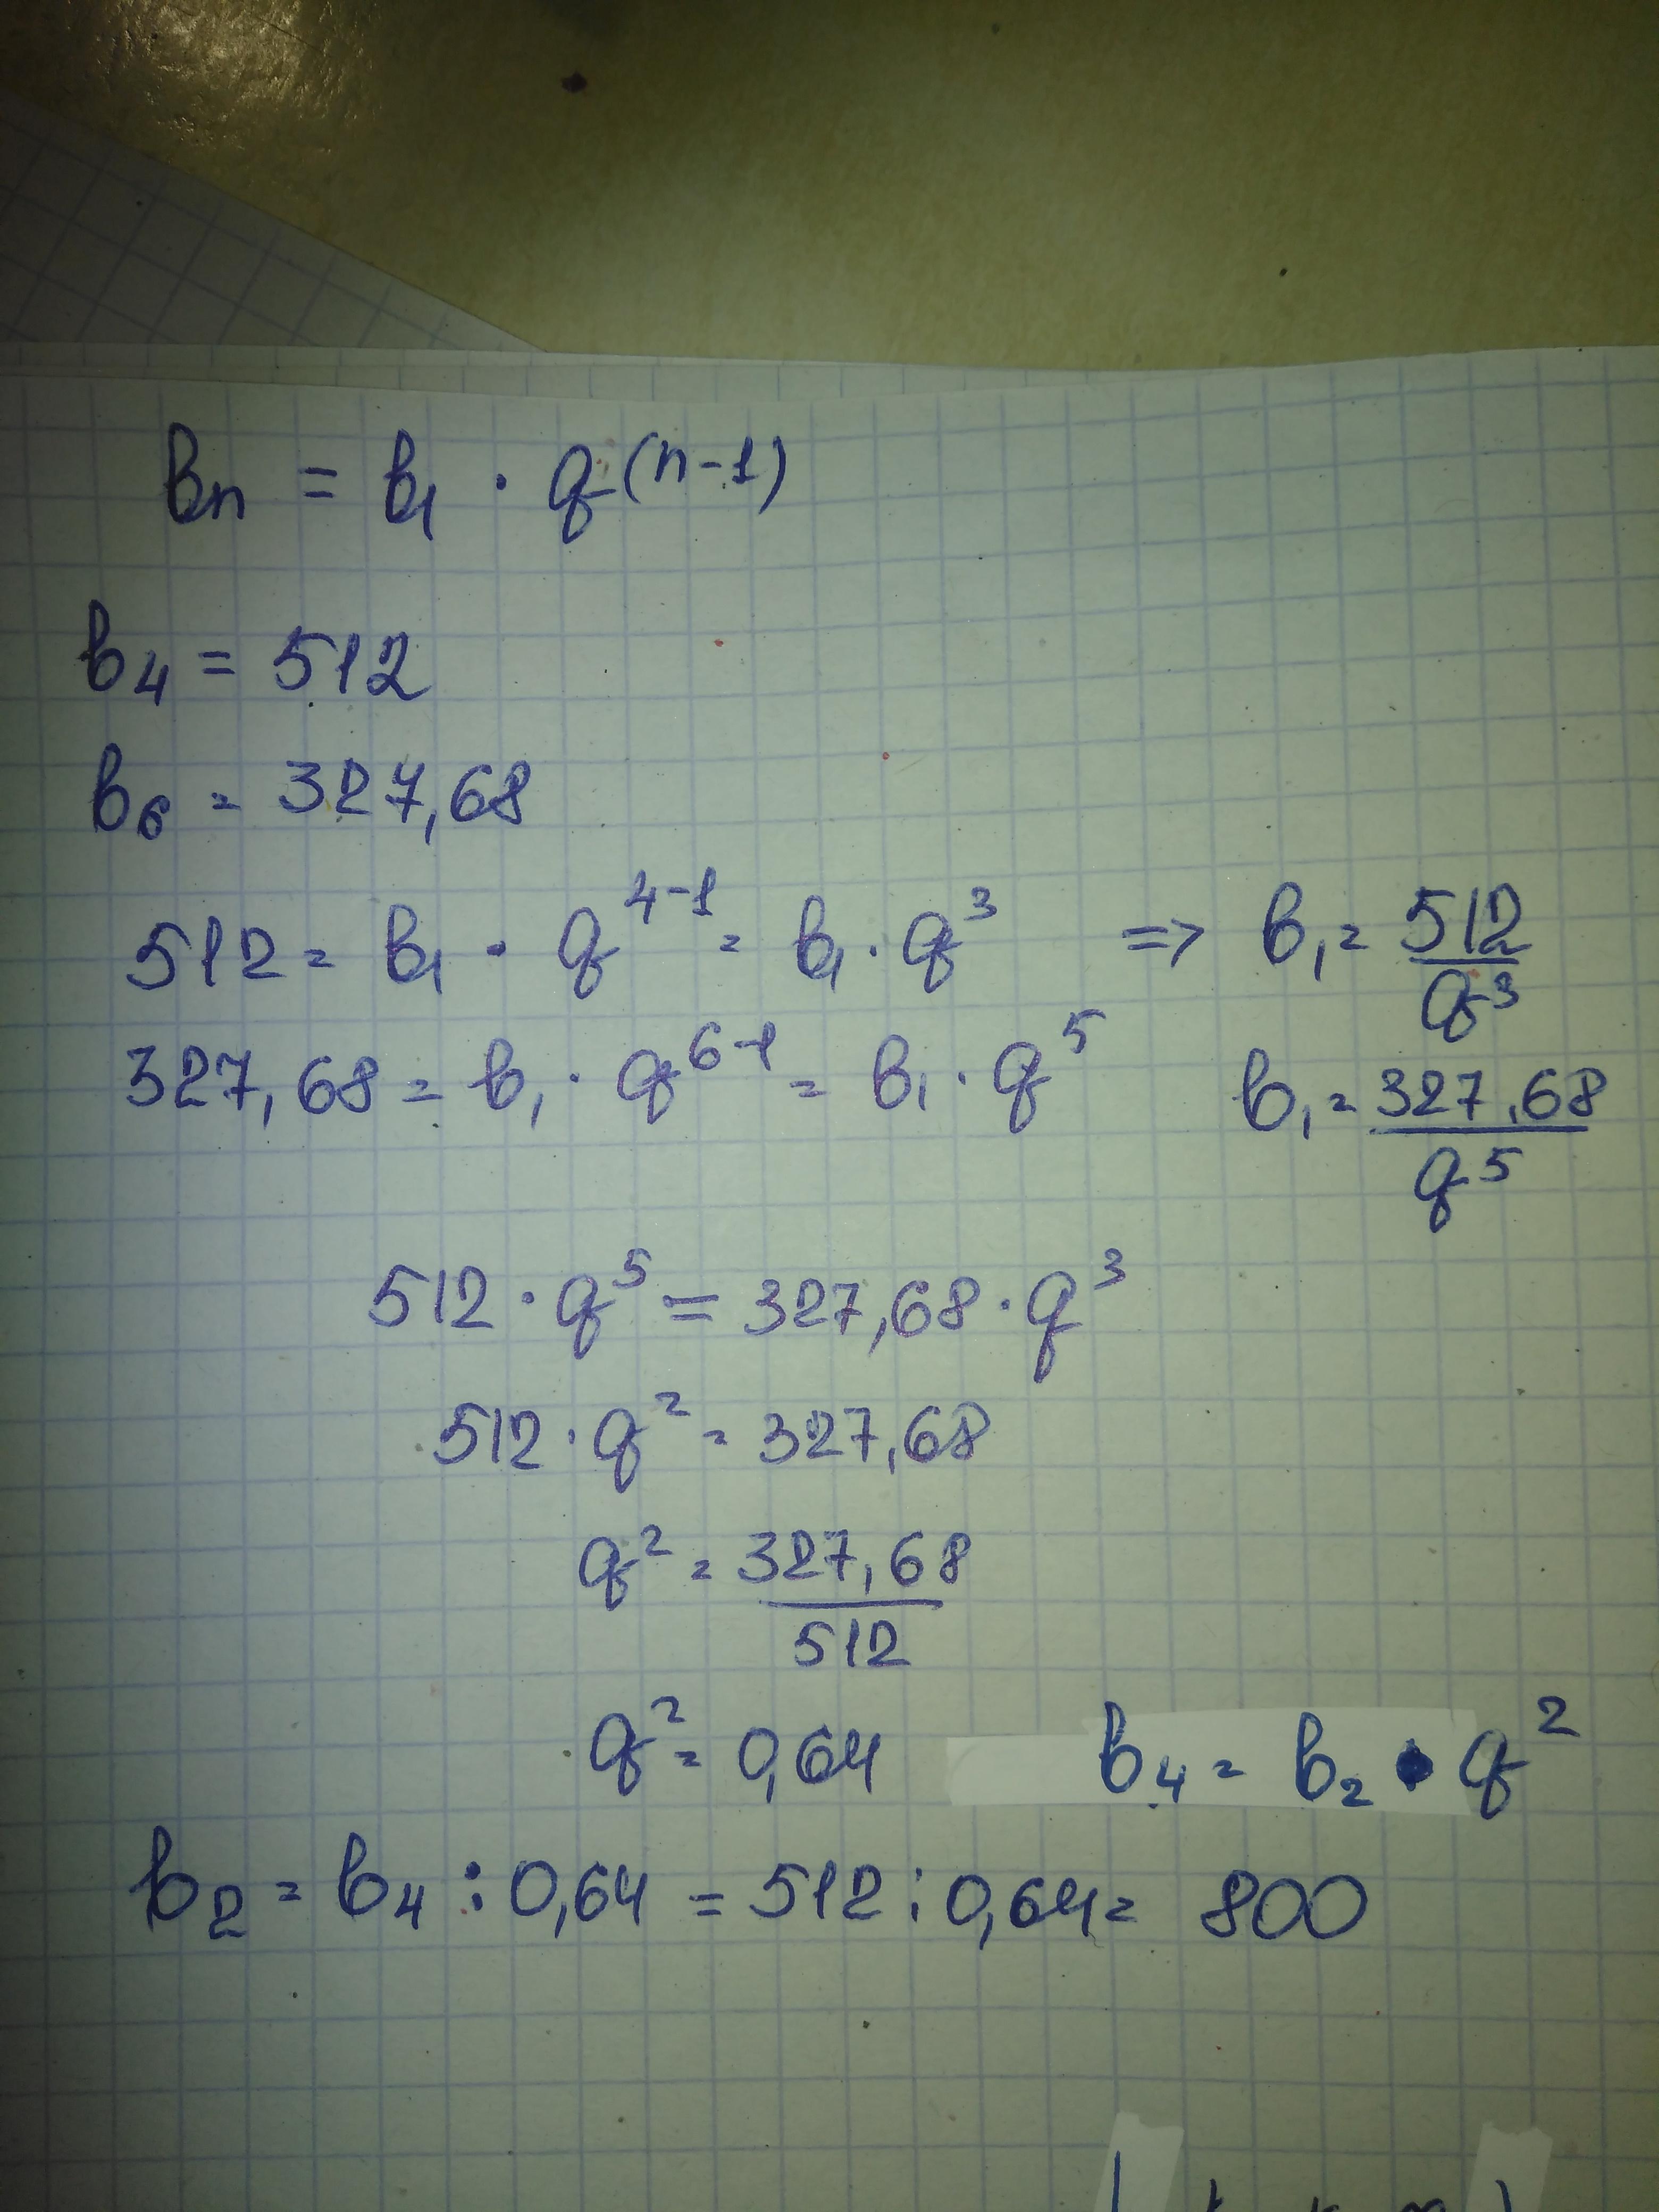 bn = b₁ · q⁽ⁿ⁻¹⁾
b₄ = 512
b₆ = 327,68
512 = b₁ · q⁴⁻¹ = b₁ · q³ => b₁ = 512/q³
327,68 = b₁ · q⁶⁻¹ = b₁ · q⁵ b₁ = 327,68/q⁵
512 · q⁵ = 327,68 · q³
512 · q² = 327,68
q² = 327,68/512
q² = 0,64 b₄ = b₂ · q²
b₂ = b₄ : 0,64 = 512 : 0,64 = 800